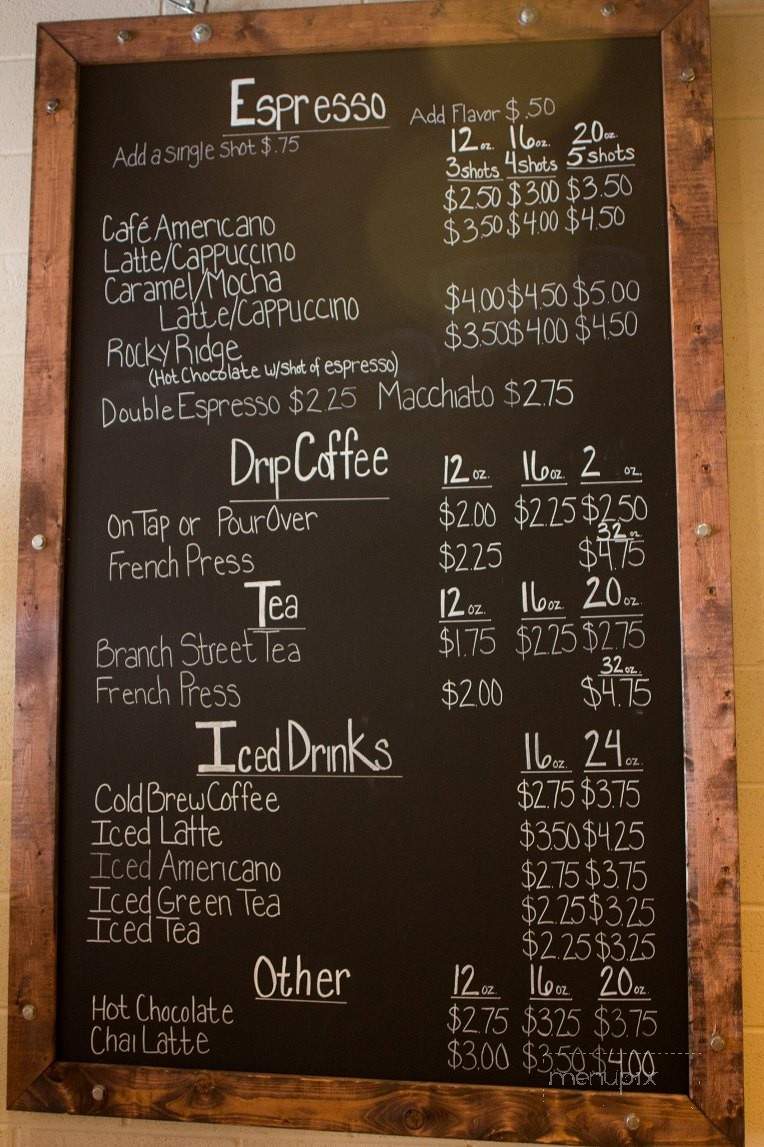 Espresso Add Flavor $.50
Add a single shot $.75
12 oz. 16 oz. 20 oz.
3 shots 4 shots 5 shots
$2.50 $3.00 $3.50
Café Americano $3.50 $4.00 $4.50
Latte/Cappuccino
Caramel/Mocha
Latte/Cappuccino $4.00 $4.50 $5.00
Rocky Ridge $3.50 $4.00 $4.50
(Hot Chocolate w/shot of espresso)
Double Espresso $2.25 Macchiato $2.75
Drip Coffee 12 oz. 16 oz. 2 oz.
On Tap or Pour Over $2.00 $2.25 $2.50
32 oz.
French Press $2.25 $4.75
Tea 12 oz. 16 oz. 20 oz.
Branch Street Tea $1.75 $2.25 $2.75
32 oz.
French Press $2.00 $4.75
Iced Drinks 16 oz. 24 oz.
Cold Brew Coffee $2.75 $3.75
Iced Latte $3.50 $4.25
Iced Americano $2.75 $3.75
Iced Green Tea $2.25 $3.25
Iced Tea $2.25 $3.25
Other 12 oz. 16 oz. 20 oz.
Hot Chocolate $2.75 $3.25 $3.75
Chai Latte $3.00 $3.50 $4.00
menupix